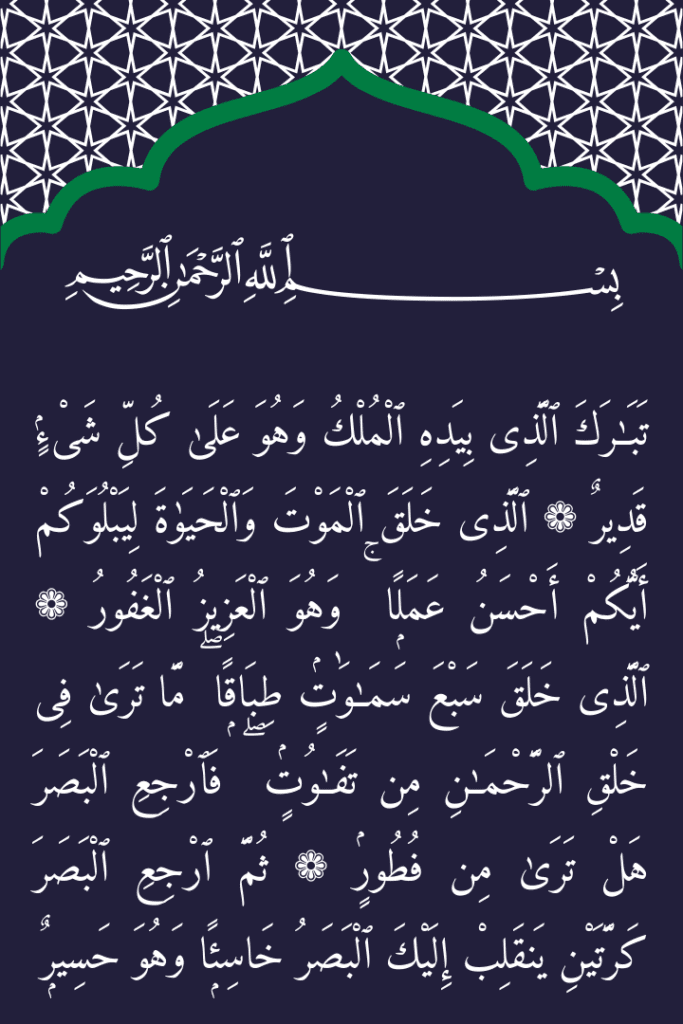 بِسْمِ ٱللَّهِ ٱلرَّحْمَـٰنِ ٱلرَّحِيمِ
تَبَـٰرَكَ ٱلَّذِى بِيَدِهِ ٱلْمُلْكُ وَهُوَ عَلَىٰ كُلِّ شَىْءٍۢ
قَدِيرٌ ۝ ٱلَّذِى خَلَقَ ٱلْمَوْتَ وَٱلْحَيَوٰةَ لِيَبْلُوَكُمْ
أَيُّكُمْ أَحْسَنُ عَمَلًۭا ۚ وَهُوَ ٱلْعَزِيزُ ٱلْغَفُورُ ۝
ٱلَّذِى خَلَقَ سَبْعَ سَمَـٰوَٰتٍۢ طِبَاقًۭا ۖ مَّا تَرَىٰ فِى
خَلْقِ ٱلرَّحْمَـٰنِ مِن تَفَـٰوُتٍۢ ۖ فَٱرْجِعِ ٱلْبَصَرَ
هَلْ تَرَىٰ مِن فُطُورٍۢ ۝ ثُمَّ ٱرْجِعِ ٱلْبَصَرَ
كَرَّتَيْنِ يَنقَلِبْ إِلَيْكَ ٱلْبَصَرُ خَاسِئًۭا وَهُوَ حَسِيرٌۭ